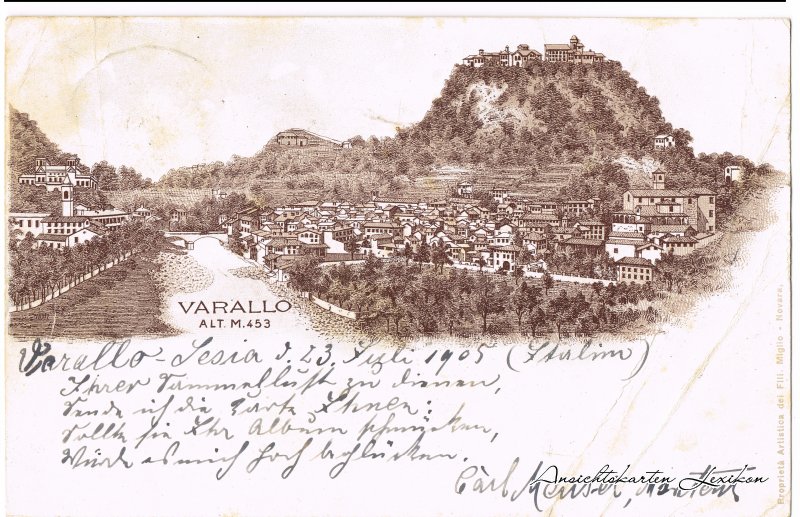 VARALLO
ALT. M. 453
Varallo-Sesia d. 23. Juli 1905 (Italien)
Ihrer Sammellust zu dienen,
Sende ich die Karte Ihnen:
Sollte sie Ihr Album schmücken,
Würde es mich hoch beglücken.
Carl
Ansichtskarten Lexikon
Proprietà Artistica dei Flli. Miglio - Novara.